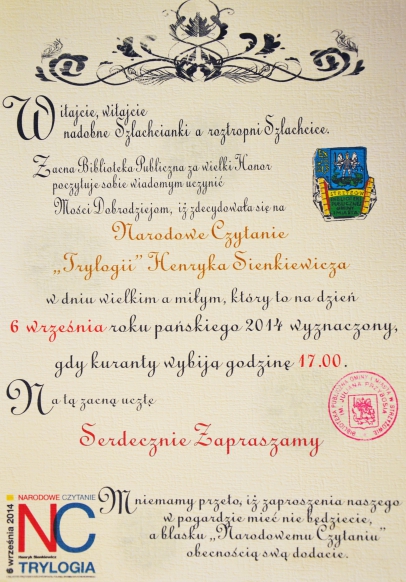 Witajcie, witajcie
nadobne Szlachcianki a roztropni Szlachcice.
Zacna Biblioteka Publiczna za wielki Honor
poczytuje sobie wiadomym uczynić
Mości Dobrodziejom, iż zdecydowała się na
Narodowe Czytanie
„Trylogii” Henryka Sienkiewicza
w dniu wielkim a miłym, który to na dzień
6 września roku pańskiego 2014 wyznaczony,
gdy kuranty wybiją godzinę 17.00.
Na tą zacną ucztę
Serdecznie Zapraszamy
BIBLIOTEKA PUBLICZNA GMINY I MIASTA
IM. JULIANA PRZYBOSIA
Mniemamy przeto, iż zaproszenia naszego
w pogardzie mieć nie będziecie,
a blasku „Narodowemu Czytaniu”
obecnością swą dodacie.
6 września 2014
NARODOWE CZYTANIE
NC
Henryk Sienkiewicz
TRYLOGIA